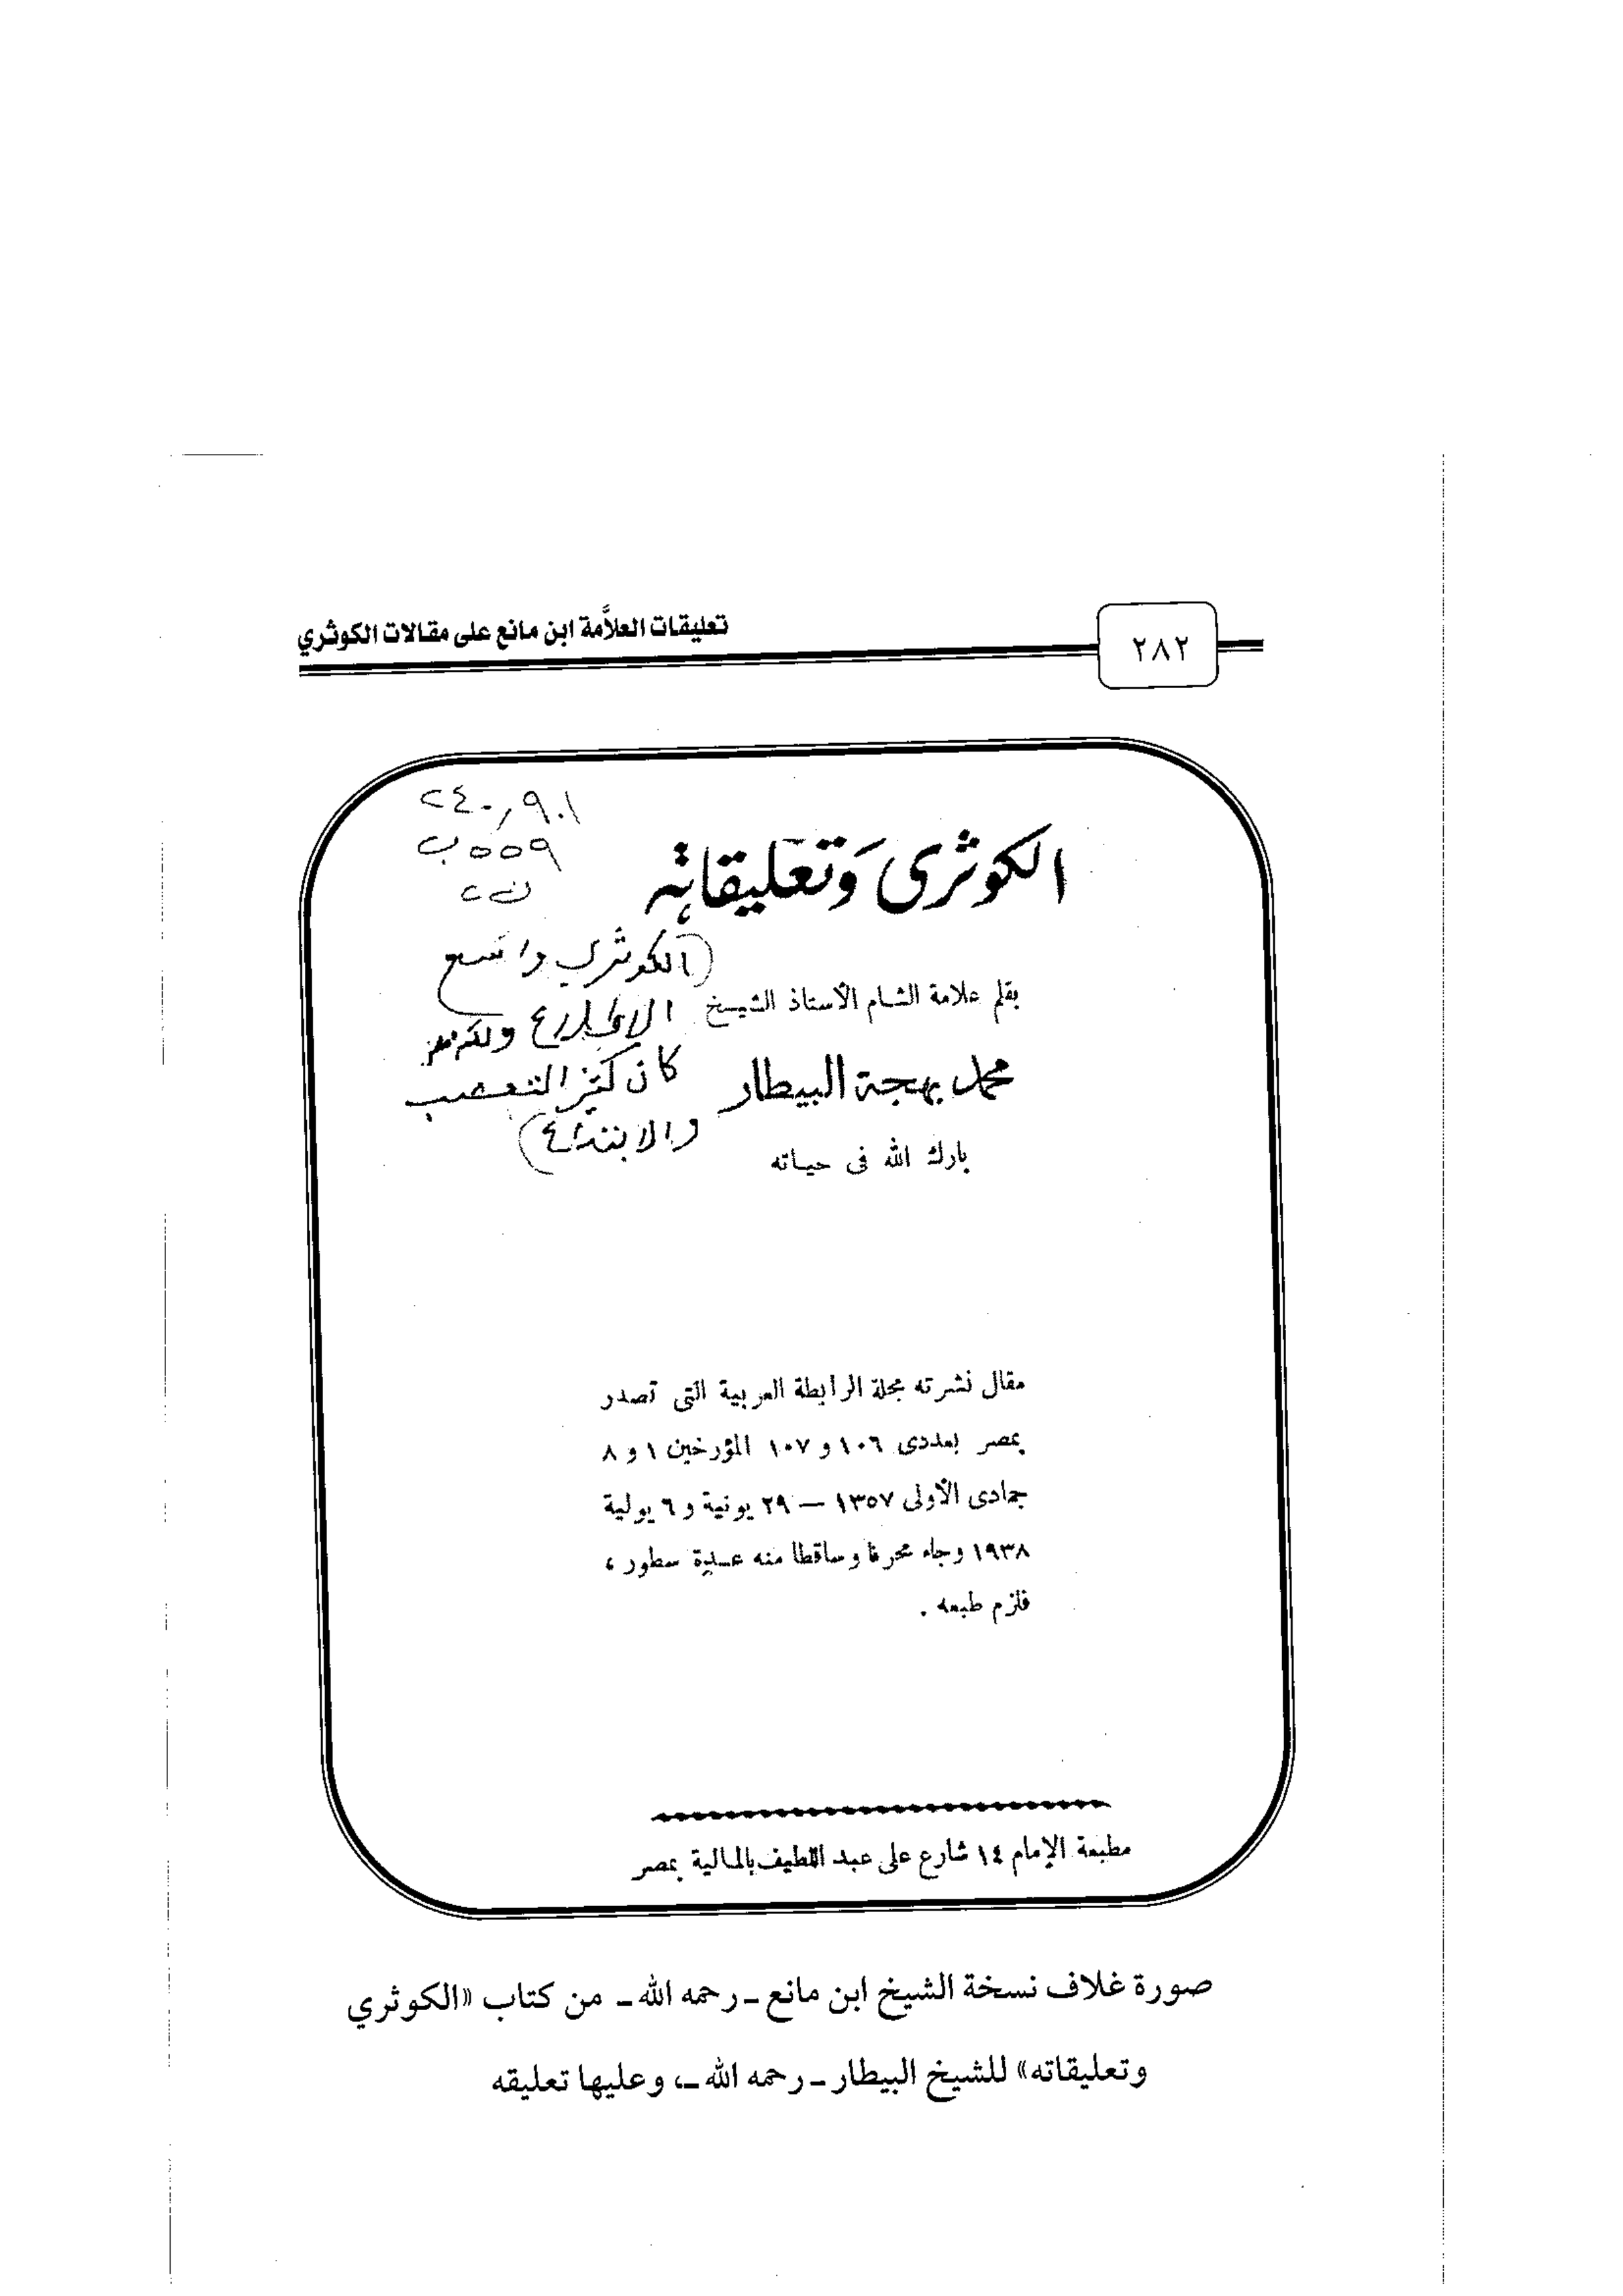 تعليقات العلاَّمة ابن مانع على مقالات الكوثري
٢٨٢
٢٤٠,٩٠١
٥٥٩ ب
الكوثرى وَتعليقاته
(الكوثري واسع
الاطلاع ولكنه
كان كثير التعصب
والابتداع)
بقلم علامة الشام الأستاذ الشيخ
محمد بهجة البيطار
بارك الله فى حياته
مقال نشرته مجلة الرابطة العربية التى تصدر
بمصر بعددى ١٠٦ و ١٠٧ المؤرخين ١ و ٨
جمادى الأولى ١٣٥٧ — ٢٩ يونية و ٦ يولية
١٩٣٨ وجاء محرفا وساقطا منه عدة سطور ،
فلزم طبعه .
مطبعة الإمام ١٤ شارع على عبد اللطيف بالمالية بمصر
صورة غلاف نسخة الشيخ ابن مانع ـ رحمه الله ـ من كتاب «الكوثري
وتعليقاته» للشيخ البيطار ـ رحمه الله ـ، وعليها تعليقه